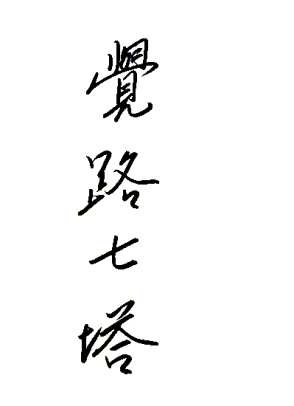 覺路七塔